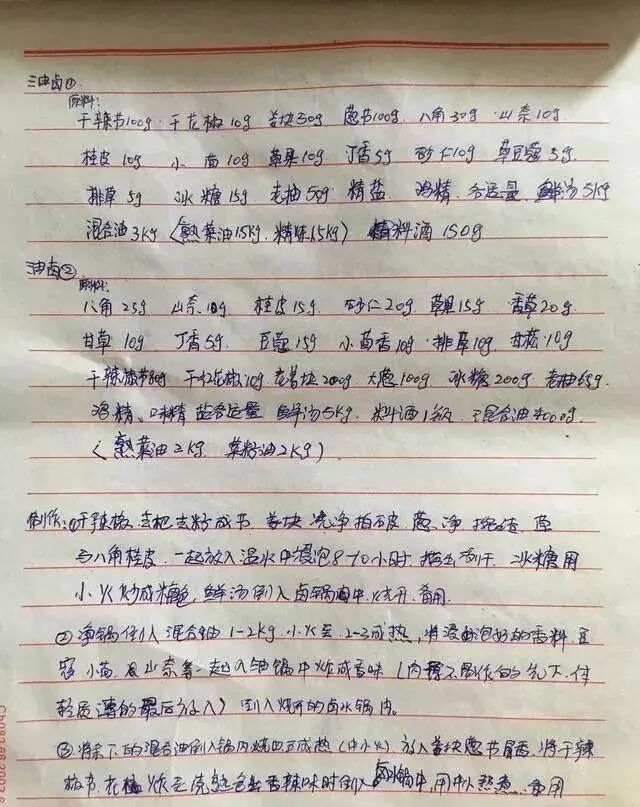 油卤①
原料:
干辣节100g. 干花椒10g 姜块50g 葱节100g. 八角30g. 山奈10g.
桂皮10g 小茴10g 草果10g 丁香5g 砂仁10g 草豆蔻5g.
排草5g 冰糖15g 老抽55g 精盐 鸡精. 各适量. 鲜汤5kg
混合油3kg (熟菜油1.5kg. 精炼1.5kg) 料酒150g
油卤②
原料:
八角25g 山奈10g 桂皮15g. 砂仁20g 草果15g. 香草20g.
甘草10g 丁香5g. 豆蔻15g 小茴香10g. 排草10g. 甘松10g
干辣椒节80g 干红花椒10g 老姜块200g. 大葱100g 冰糖200g 老抽55g.
鸡精、味精 盐各适量 鲜汤5kg. 料酒1瓶. 混合油4000g.
(熟菜油2kg. 菜籽油2kg).
制作: ①干辣椒 去把去籽成节. 姜块 洗净拍破 葱 净 挽结, 草
与八角桂皮. 一起放入温水中浸泡8-10小时 捞出 沥干. 冰糖用
小火炒成糖色, 鲜汤倒入卤锅中. 烧开. 备用.
② 净锅倒入混合油1-2kg. 小火至2-3成热, 将浸泡好的香料 豆
蔻 小茴 及山奈等一起入油锅中炸成香味 (内 的先下. 体
轻质薄的最后放入) 倒入烧开的卤水锅内.
③ 将余下的混合油倒入锅内烧四五成热 (中小火). 放入姜块葱节 香. 将干辣
椒节. 花椒 炸至 色出香辣味时倒入卤水锅中, 用中小 . 备用